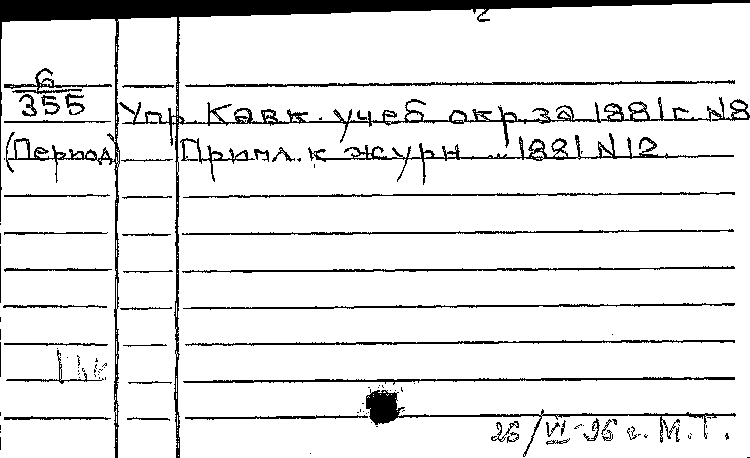 2
G
355
Упр. Кавк. учеб окр. за 1881 г. N8
(Период)
Прилл. к журн ... 1881 N 12.
1 hк
26/VI-96 г. М.Т.